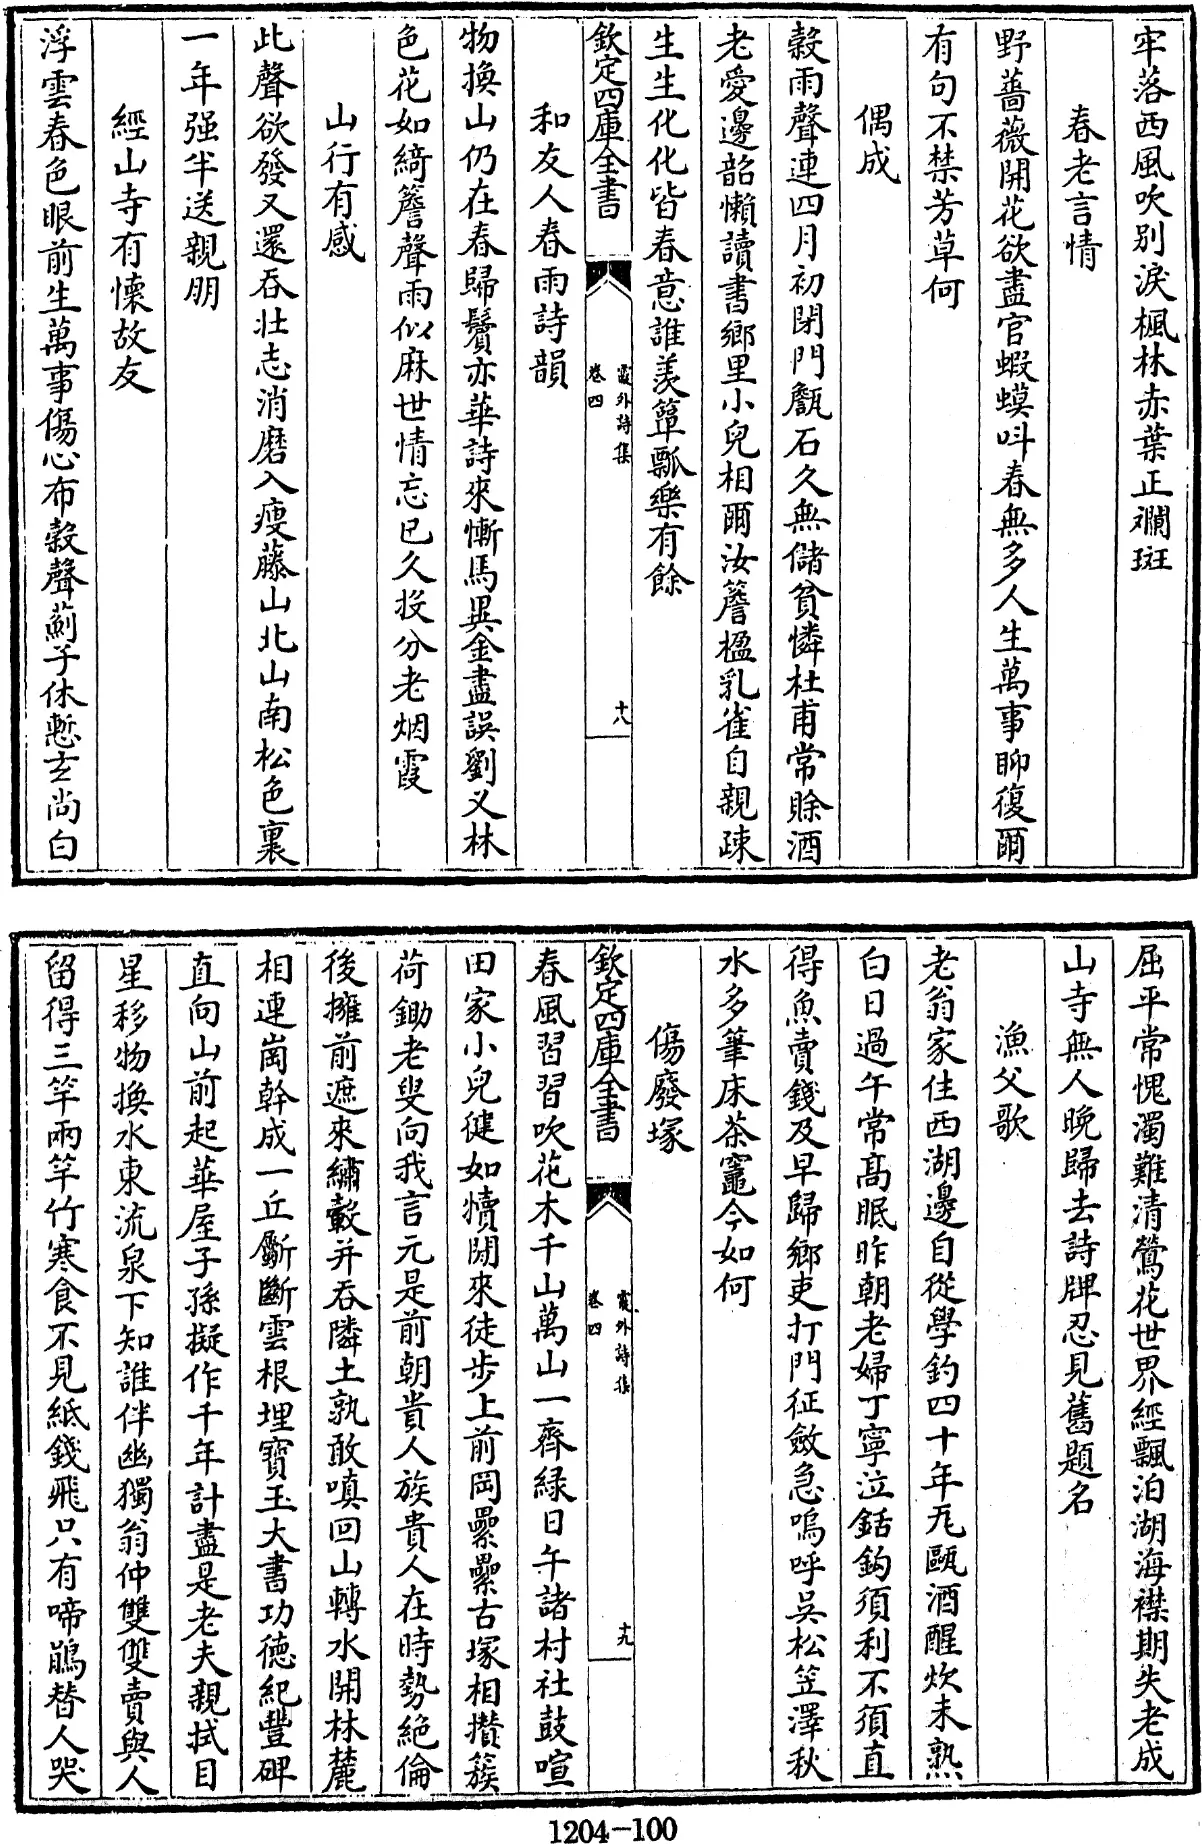 牢落西風吹别淚楓林赤葉正斕斑
春老言情
野薔薇開花欲盡官蝦蟆呌春無多人生萬事聊復爾
有句不禁芳草何
偶成
榖雨聲連四月初閉門甔石久無儲貧憐杜甫常賒酒
老愛邊韶懶讀書鄉里小兒相爾汝簷楹乳雀自親疎
生生化化皆春意誰羡簞瓢樂有餘
欽定四庫全書
霞外詩集
卷四
十八
和友人春雨詩韻
物換山仍在春歸鬢亦華詩來慚馬異金盡誤劉乂林
色花如綺簷聲雨似麻世情忘已久投分老烟霞
山行有感
此聲欲發又還吞壯志消磨入瘦藤山北山南松色裏
一年强半送親朋
經山寺有懷故友
浮雲春色眼前生萬事傷心布榖聲薊子休慙玄尚白
屈平常愧濁難清鶯花世界經飄泊湖海襟期失老成
山寺無人晚歸去詩牌忍見舊題名
漁父歌
老翁家住西湖邊自從學釣四十年瓦甌酒醒炊未熟
白日過午常髙眠昨朝老婦丁寧泣銛鈎須利不須直
得魚賣錢及早歸鄉吏打門征斂急嗚呼吳松笠澤秋
水多筆床茶竈今如何
傷廢塚
欽定四庫全書
霞外詩集
卷四
十九
春風習習吹花木千山萬山一齊緑日午諸村社鼓喧
田家小兒健如犢閒來徒步上前岡纍纍古塚相攅簇
荷鋤老叟向我言元是前朝貴人族貴人在時勢絶倫
後擁前遮來繡轂并吞隣土孰敢嗔回山轉水開林麓
相連崗幹成一丘斸斷雲根埋寶玉大書功德紀豐碑
直向山前起華屋子孫擬作千年計盡是老夫親拭目
星移物換水東流泉下知誰伴幽獨翁仲雙雙賣與人
留得三竿兩竿竹寒食不見紙錢飛只有啼鵑替人哭
1204-100